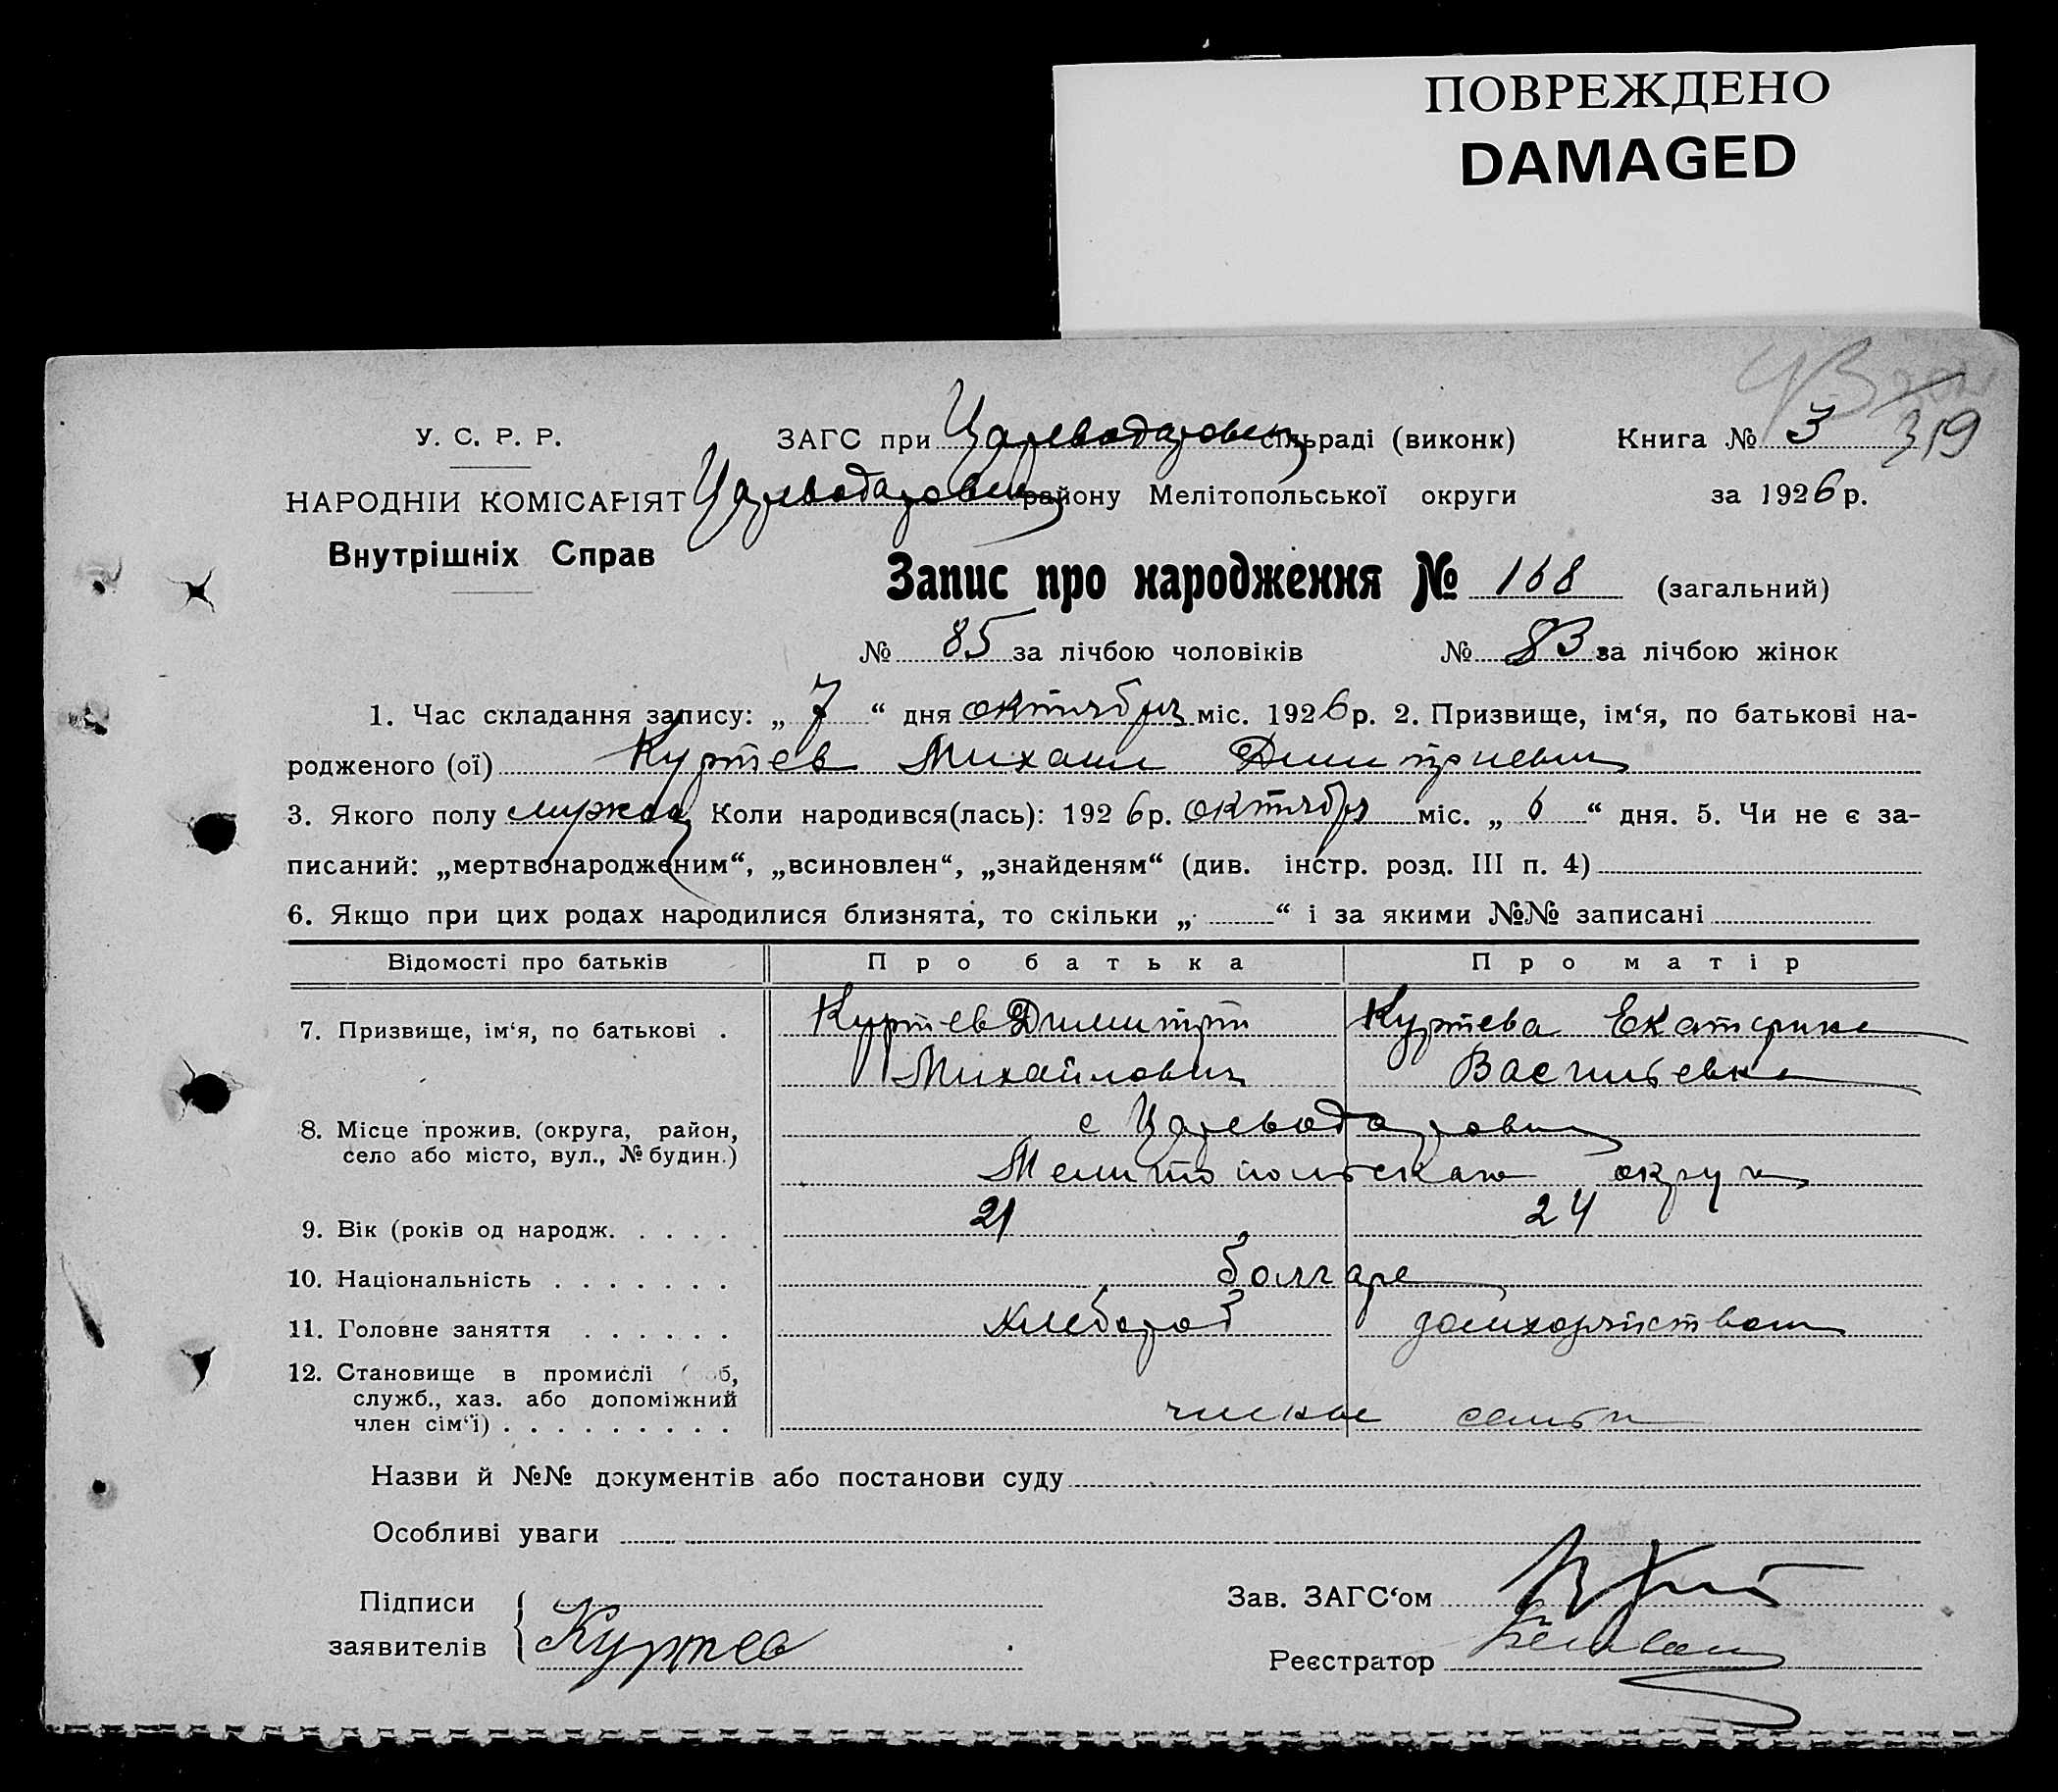 ПОВРЕЖДЕНО
DAMAGED
319
У. С. Р. Р. ЗАГС при Цареводаровск сільраді (виконк) Книга № 3
НАРОДНІЙ КОМІСАРІЯТ Цареводаровск району Мелітопольської округи за 1926 р.
Внутрішніх Справ
Запис про народження № 168 (загальний)
№ 85 за лічбою чоловіків № 83 за лічбою жінок
1. Час складання запису: „ 7 “ дня октября міс. 1926 р. 2. Призвище, ім‘я, по батькові на-
родженого (ої) Куртев Михаил Димитриевич
3. Якого полу мужской Коли народився(лась): 1926 р. октября міс. „ 6 “ дня. 5. Чи не є за-
писаний: „мертвонародженим“, „всиновлен“, „знайденям“ (див. інстр. розд. III п. 4)
6. Якщо при цих родах народилися близнята, то скільки „ “ і за якими №№ записані
Відомості про батьків Про батька Про матір
7. Призвище, ім‘я, по батькові . Куртев Димитрий Куртева Екатерина
Михайлович Васильевна
8. Місце прожив. (округа, район, с Цареводаровка
село або місто, вул., № будин.) Мелитопольскаго округа
9. Вік (років од народж. . . . . 21 24
10. Національність . . . . . . . болгаре
11. Головне заняття . . . . . . хлебороб домхозяйством
12. Становище в промислі б,
служб., хаз. або допоміжний
член сім‘ї) . . . . . . . . . члены семьи
Назви й №№ документів або постанови суду
Особливі уваги
Підписи Зав. ЗАГС‘ом
заявителів Куртев
Реєстратор